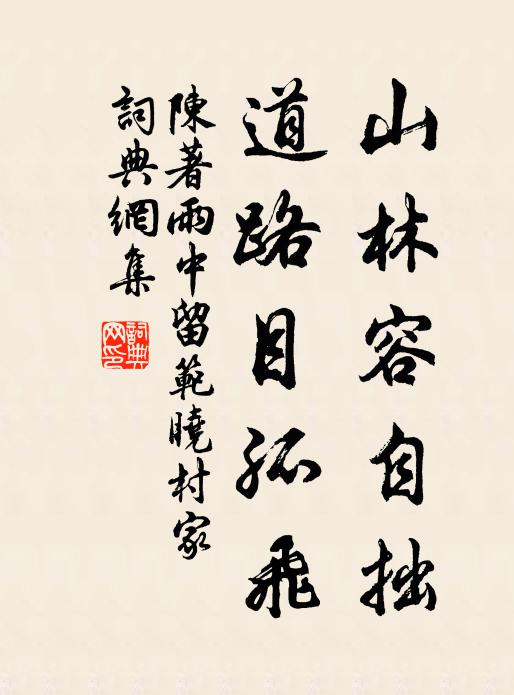 山林容自拙
道路目孤飛
陳著雨中留範曉村家
詞典網集
詞典網印